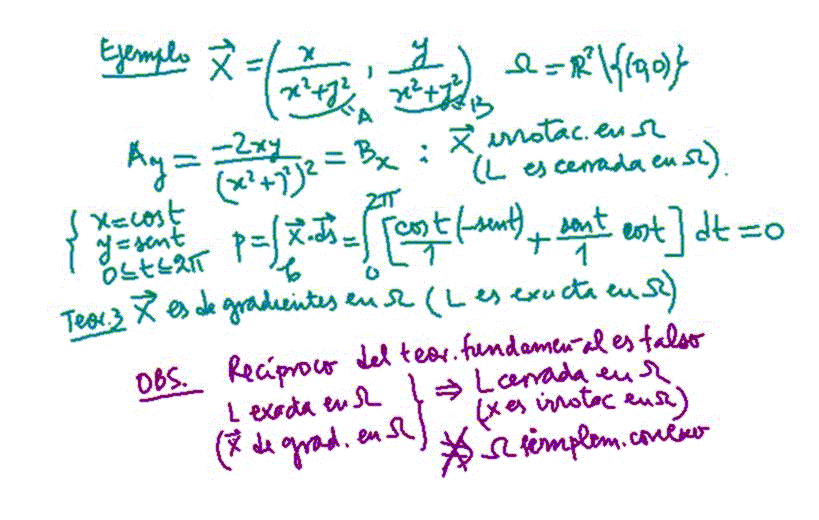 Ejemplo X⃗ = (x/(x²+y²), y/(x²+y²)) Ω = ℝ² \ {(0,0)}
=A =B
A_y = -2xy/(x²+y²)² = B_x : X⃗ irrotac. en Ω
(L es cerrada en Ω).
{ x=cost
y=sent
0≤t≤2π
p = ∫_C X⃗·ds⃗ = ∫_0^{2π} [cost/1 (-sent) + sent/1 cost] dt = 0
Teor.3 X⃗ es de gradientes en Ω (L es exacta en Ω)
OBS. Recíproco del teor. fundamen-al es falso
L exacta en Ω
(X⃗ de grad. en Ω
} ⇒ L cerrada en Ω
(X es irrotac en Ω)
⇏ Ω simplem. conexo